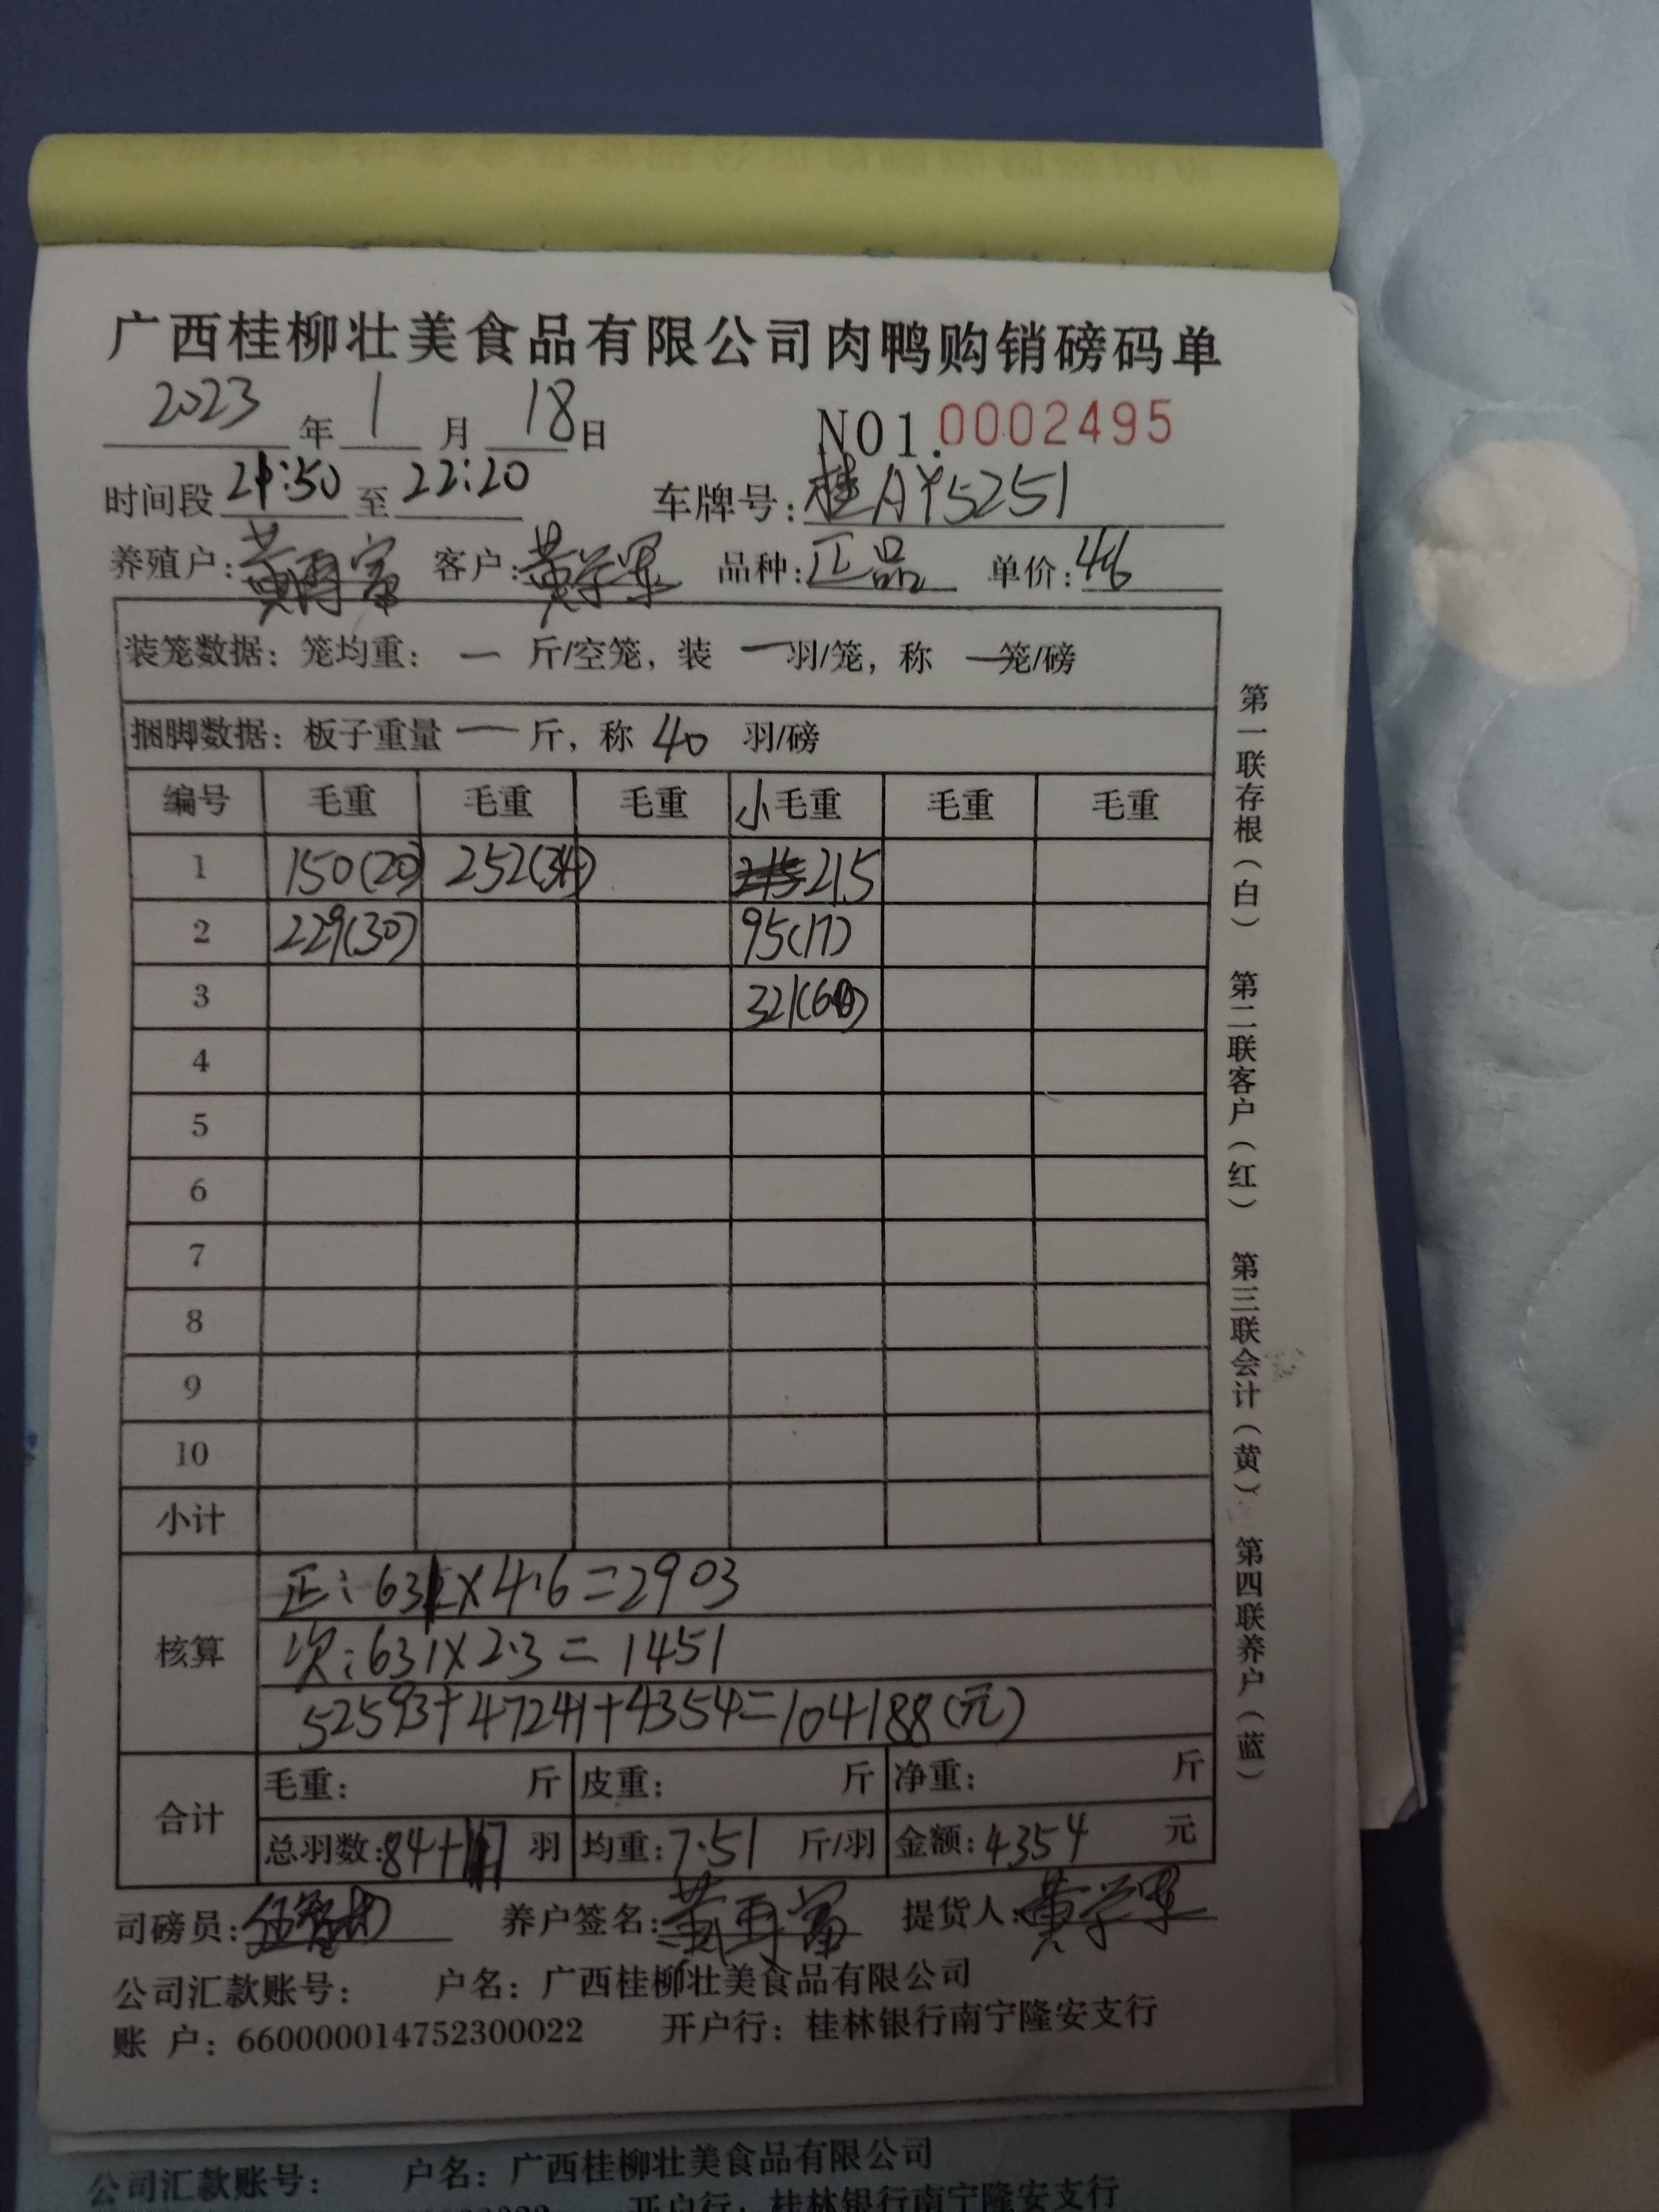 广西桂柳壮美食品有限公司肉鸭购销磅码单
2023年1月18日 NO1.0002495
时间段21:50至22:20 车牌号:桂AY5251
养殖户:黄再富 客户:黄学军 品种:正品 单价:4.6
装笼数据:笼均重:一斤/空笼,装一羽/笼,称一笼/磅
捆脚数据:板子重量一斤,称40羽/磅
编号 毛重 毛重 毛重 小毛重 毛重 毛重
1 150(20) 252(34) 215
2 229(30) 95(17)
3 321(60)
4
5
6
7
8
9
10
小计
核算
正:631×4.6=2903
次:631×2.3=1451
52593+47241+4354=104188(元)
合计
毛重: 斤 皮重: 斤 净重: 斤
总羽数:84+117羽 均重:7.51斤/羽 金额:4354元
司磅员: 养户签名:黄再富 提货人:黄学军
公司汇款账号: 户名:广西桂柳壮美食品有限公司
账户:660000014752300022 开户行:桂林银行南宁隆安支行
第一联存根(白) 第二联客户(红) 第三联会计(黄) 第四联养户(蓝)
公司汇款账号: 户名:广西桂柳壮美食品有限公司
开户行:桂林银行南宁隆安支行